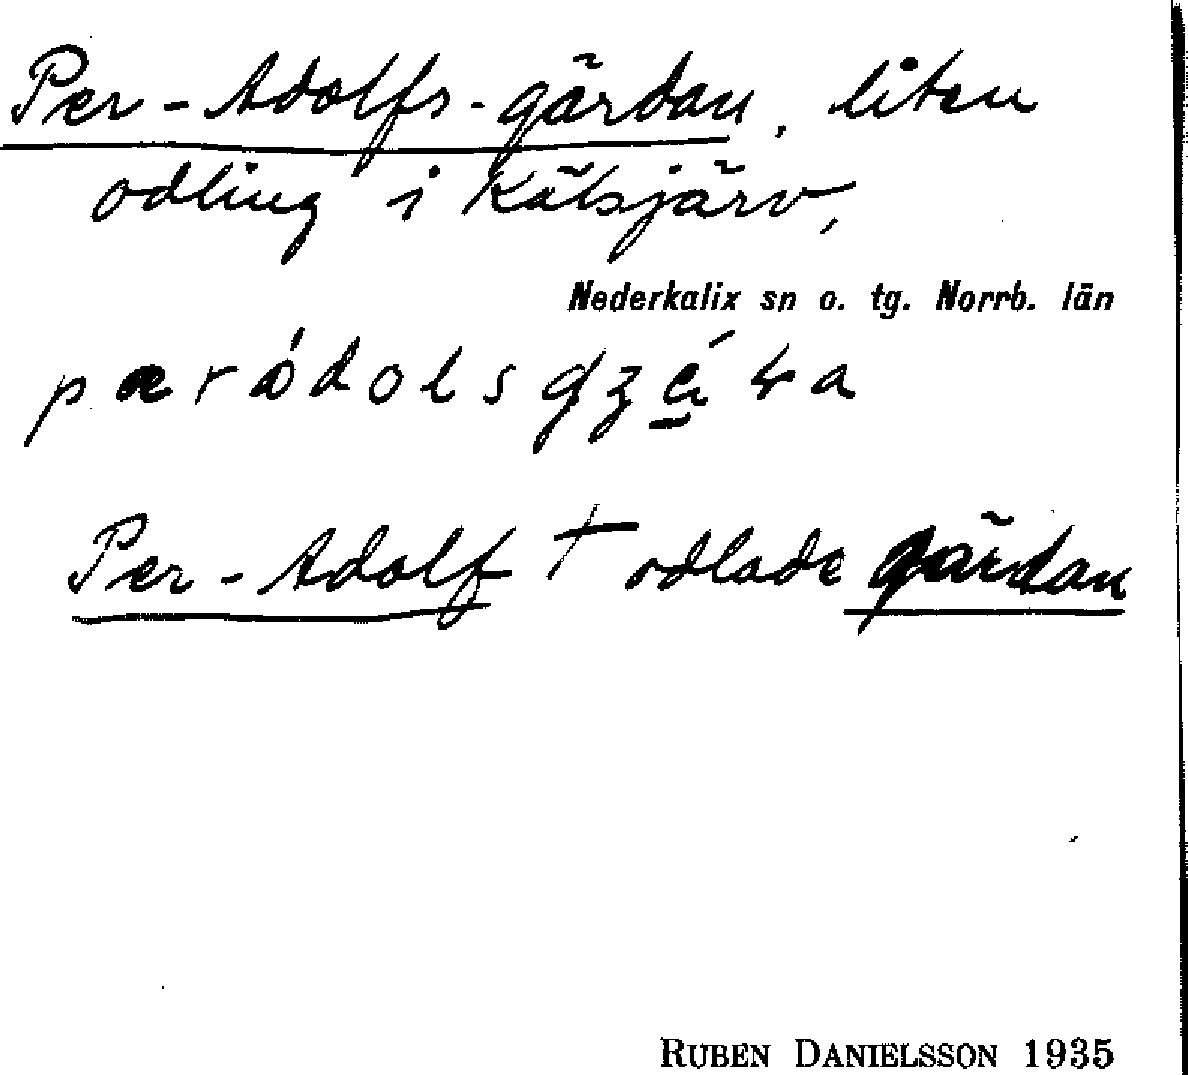 Per-Adolfs-gärdan, liten
odling i Kälsjärv,
Nederkalix sn o. tg. Norrb. län
Per-Adolf † odlade gärdan
RUBEN DANIELSSON 1935